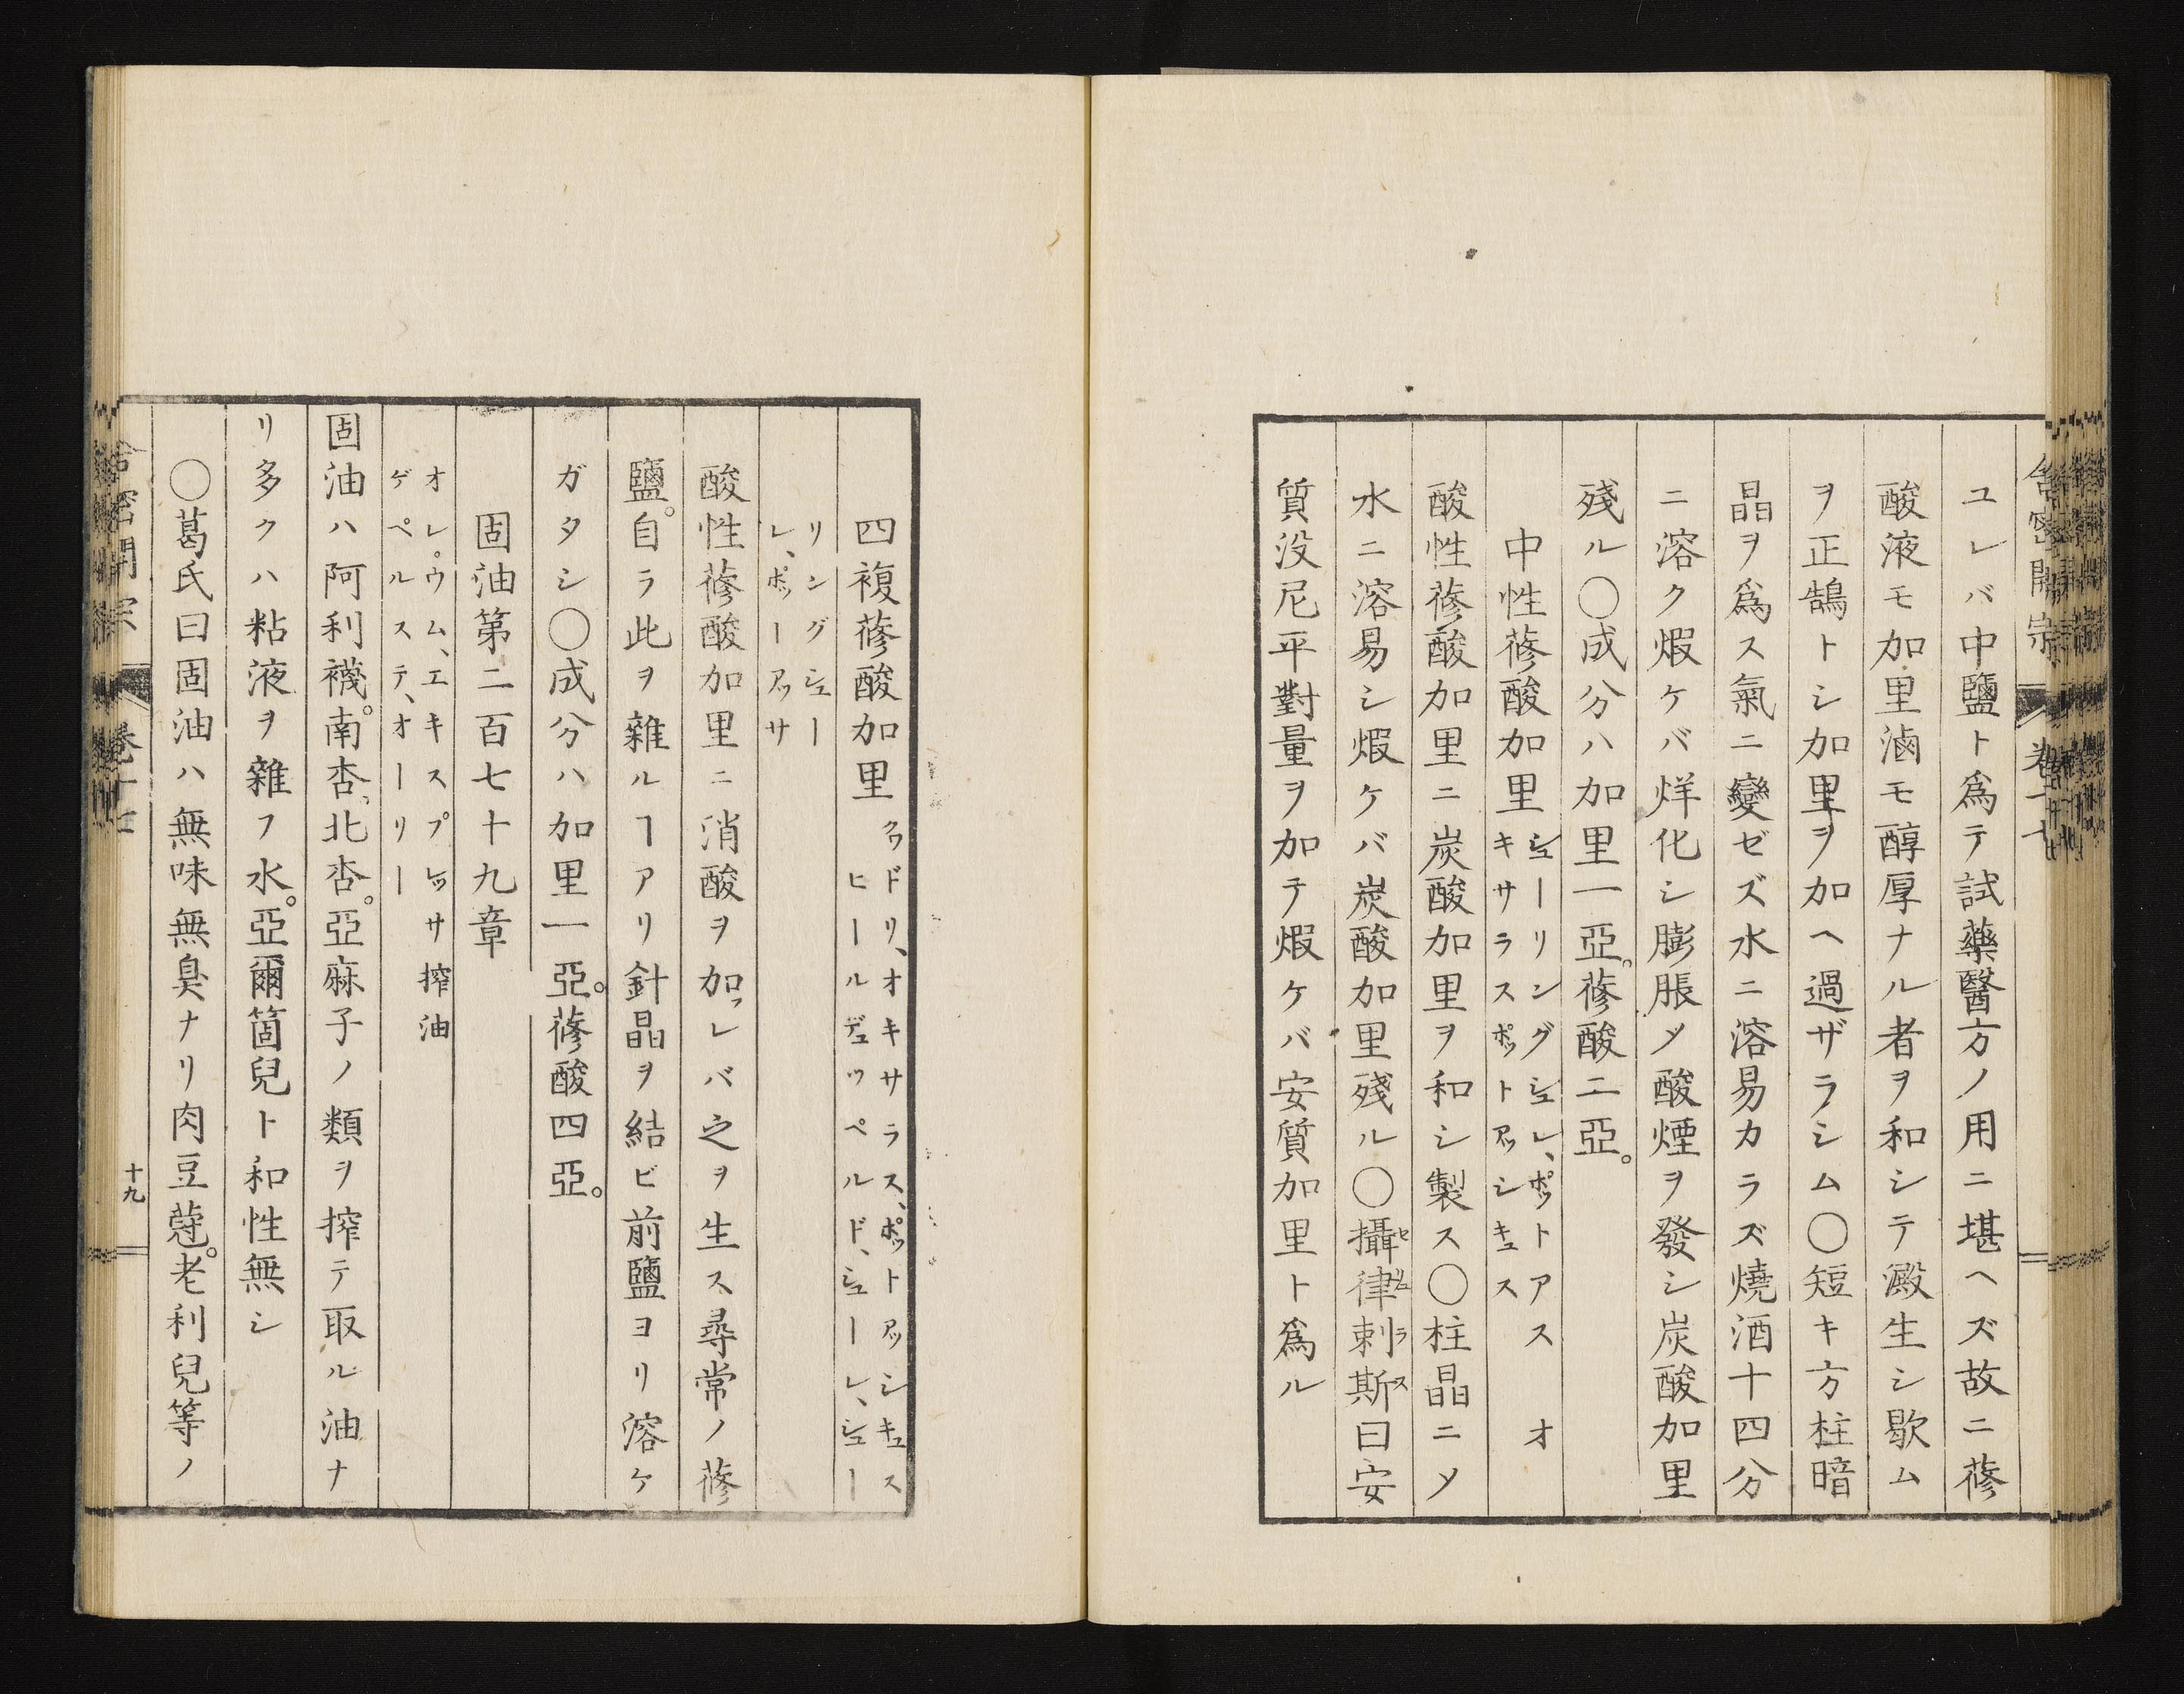 ユレバ中鹽ト爲テ試藥醫方ノ用ニ堪ヘズ故ニ蓚
酸液モ加里滷モ醇厚ナル者ヲ和シテ澱生シ歇ム
ヲ正鵠トシ加里ヲ加ヘ過ザラシム〇短キ方柱暗
晶ヲ爲ス氣ニ變ゼズ水ニ溶易カラズ燒酒十四分
ニ溶ク煆ケバ烊化シ膨脹メ酸煙ヲ發シ炭酸加里
殘ル〇成分ハ加里一亞。蓚酸二亞。
中性蓚酸加里
シューリングシュレ、ポットアス オ
キサラスポットアッシキュス
酸性蓚酸加里ニ炭酸加里ヲ和シ製ス〇柱晶ニメ
水ニ溶易シ煆ケバ炭酸加里殘ル〇攝律剌斯曰安
質没尼平對量ヲ加テ煆ケバ安質加里ト爲ル
四複蓚酸加里
クワドリ、オキサラス、ポットアッシキュス
ヒールデュッペルド、シューレ、シュー
リングシュー
レ、ポッーアッサ
酸性蓚酸加里ニ消酸ヲ加フレバ之ヲ生ス尋常ノ蓚
鹽。自ラ此ヲ雜ルヿアリ針晶ヲ結ビ前鹽ヨリ溶ケ
ガタシ〇成分ハ加里一亞。蓚酸四亞。
固油第二百七十九章
オレ。ウム、エキスプレッサ 搾油
ゲペルステ、オーリー
固油ハ阿利襪。南杏、北杏。亞麻子ノ類ヲ搾テ取ル油ナ
リ多クハ粘液ヲ雜フ水。亞爾箇兒ト和性無シ
〇葛氏曰固油ハ無味無臭ナリ肉豆蔲。老利兒等ノ
舎密開宗 卷十七
十九